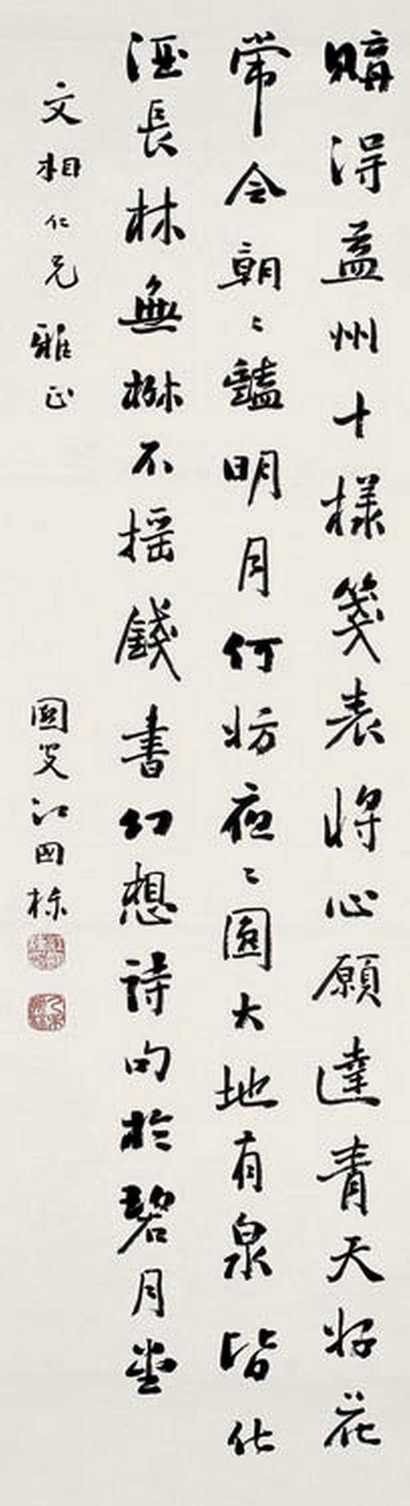 購得益州十樣箋表將心願達青天好花
常令朝々豔明月何妨夜々圓大地有泉皆化
酒長林無樹不搖錢書幻想詩句於碧月堂
文相仁兄雅正
江国栋